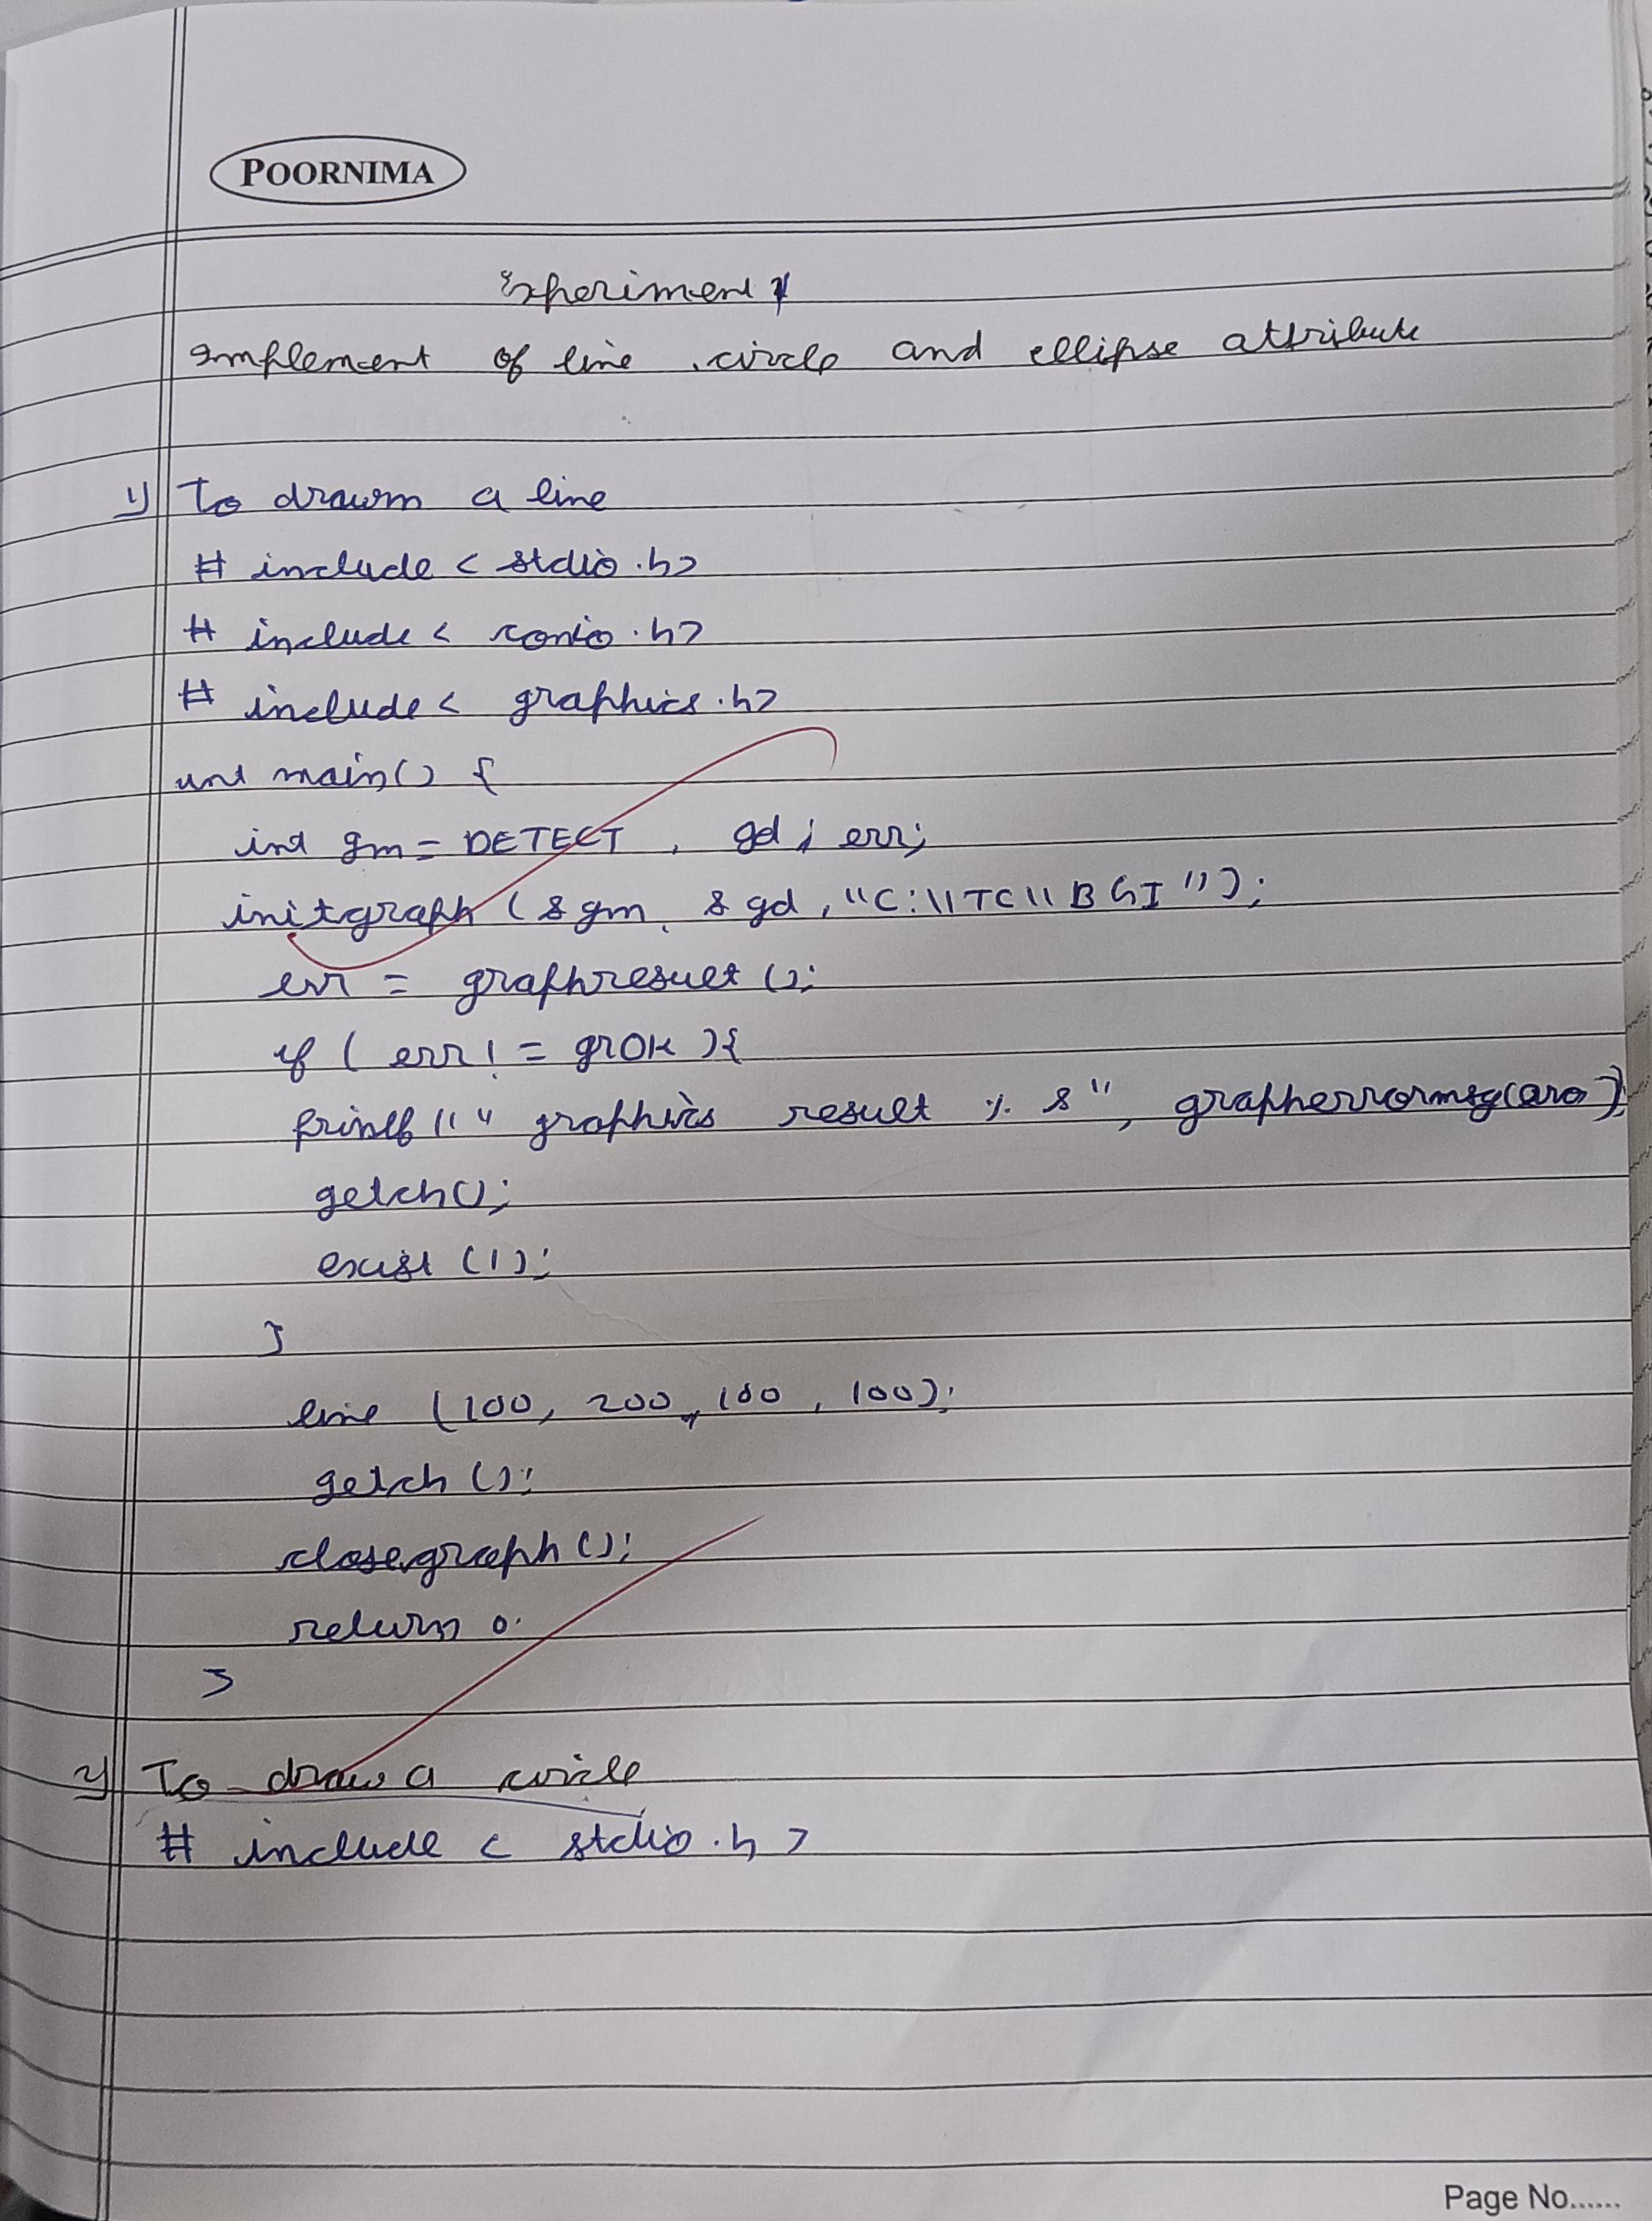 POORNIMA
Experiment 1
Implement of line, circle and ellipse attribute
1) To drawn a line
# include < stdio.h>
# include < conio.h>
# include < graphics.h>
int main() {
int gm = DETECT , gd , err;
initgraph (& gm, & gd, "C:\\TC\\BGI");
err = graphresult ();
if ( err ! = grOK ){
printf (" graphics result % s", grapherrormsg(
getch();
exist (1);
}
line (100, 200, 100, 100);
getch ();
closegraph ();
return 0;
}
2) To draw a circle
# include < stdio.h >
Page No......